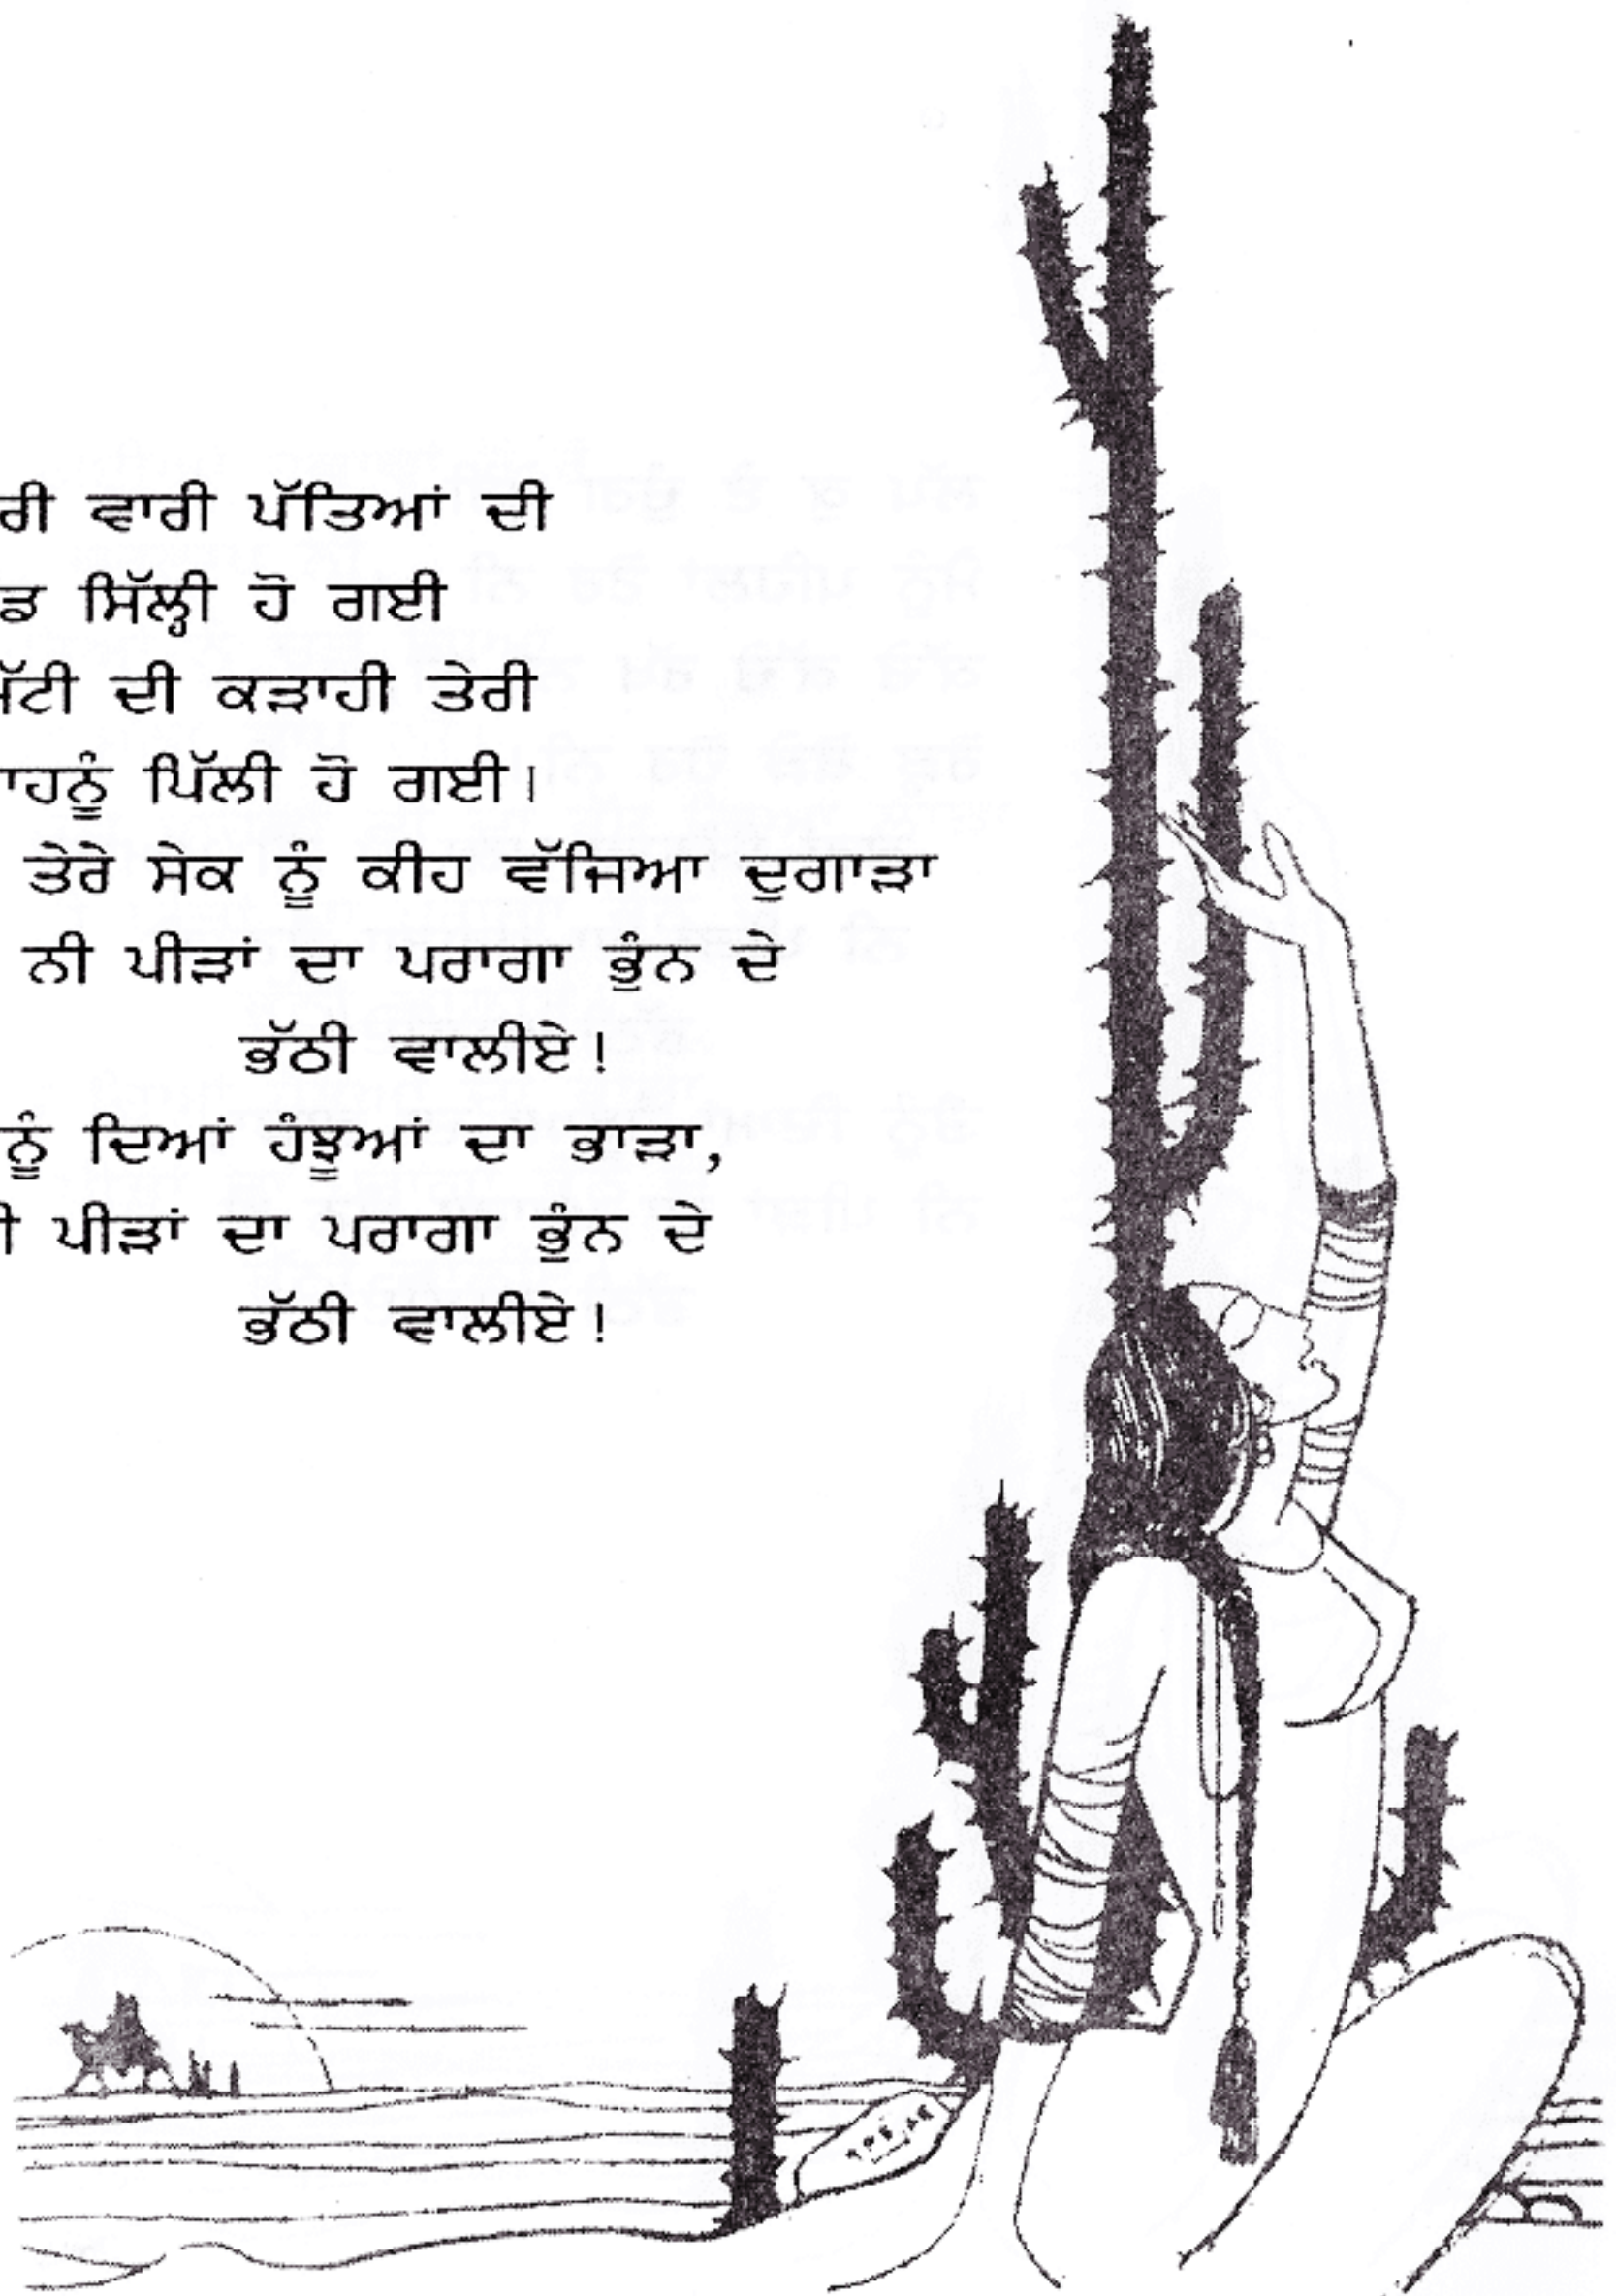 ਰੀ ਵਾਰੀ ਪੱਤਿਆਂ ਦੀ
ਡ ਸਿੱਲ੍ਹੀ ਹੋ ਗਈ
ੱਟੀ ਦੀ ਕੜਾਹੀ ਤੇਰੀ
ਾਹਨੂੰ ਪਿੱਲੀ ਹੋ ਗਈ।
ਤੇਰੇ ਸੇਕ ਨੂੰ ਕੀਹ ਵੱਜਿਆ ਦੁਗਾੜਾ
ਨੀ ਪੀੜਾਂ ਦਾ ਪਰਾਗਾ ਭੁੰਨ ਦੇ
ਭੱਠੀ ਵਾਲੀਏ!
ਨੂੰ ਦਿਆਂ ਹੰਝੂਆਂ ਦਾ ਭਾੜਾ,
ੀ ਪੀੜਾਂ ਦਾ ਪਰਾਗਾ ਭੁੰਨ ਦੇ
ਭੱਠੀ ਵਾਲੀਏ!